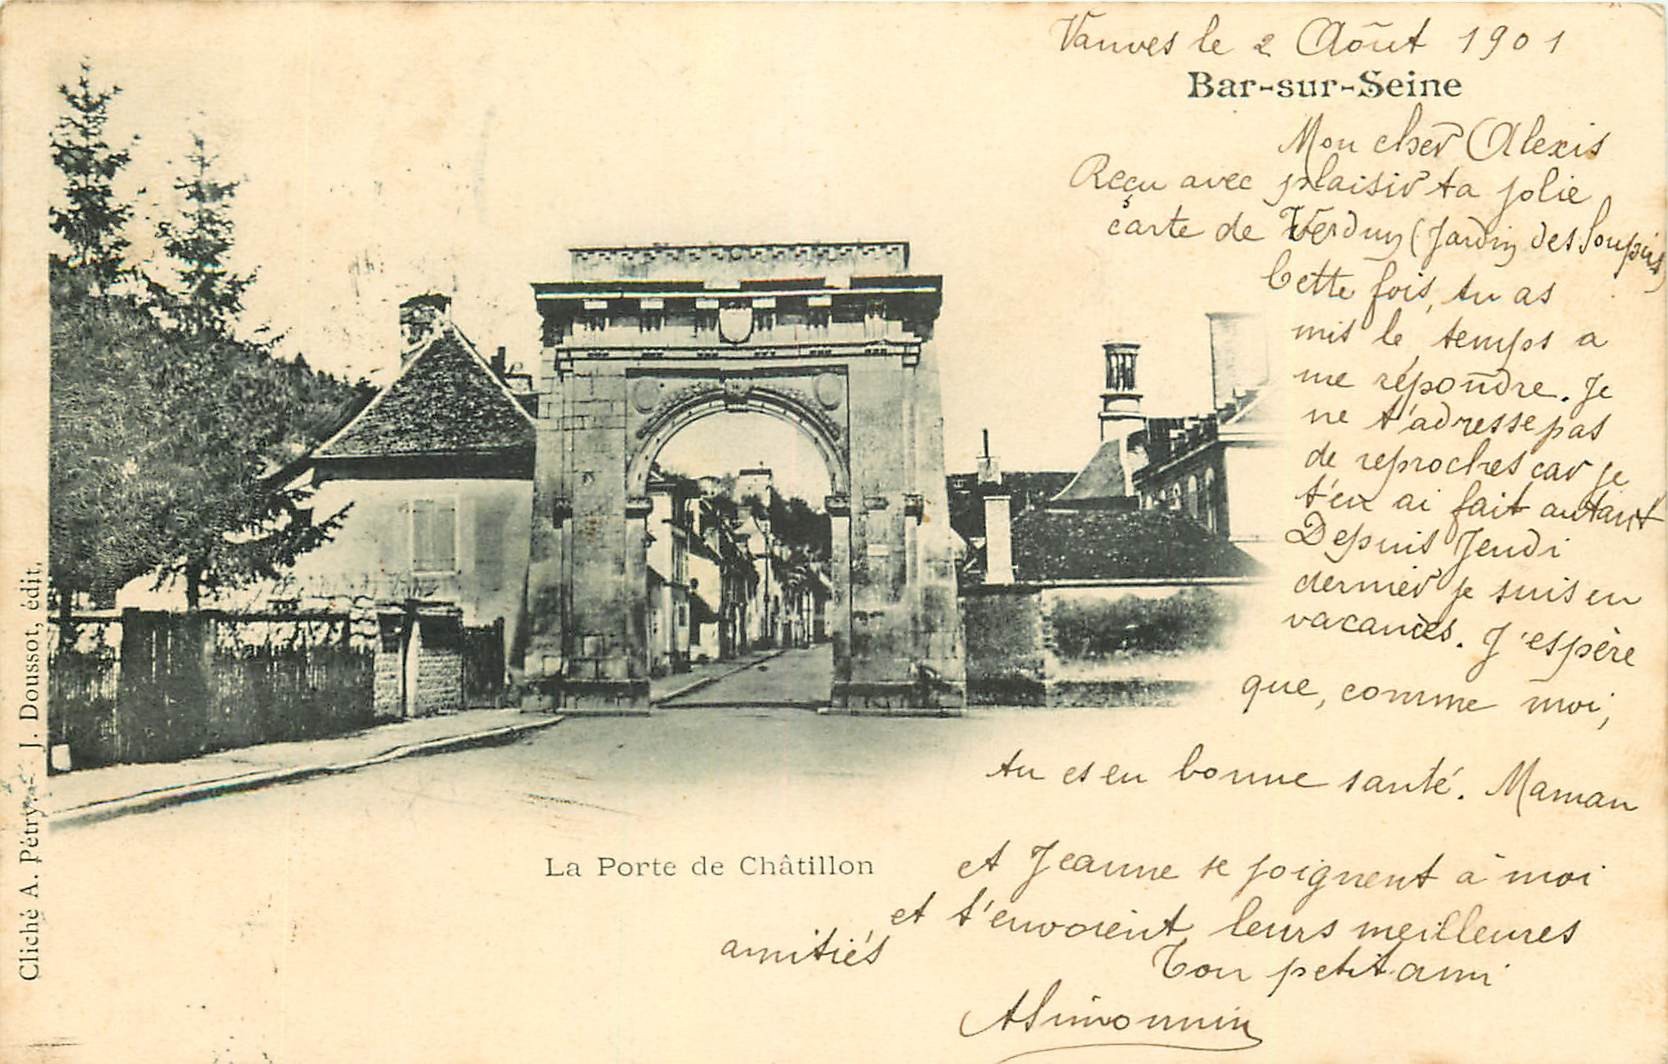 Vanves le 2 Août 1901
Bar-sur-Seine
Mon cher Alexis
Reçu avec plaisir ta jolie
carte de Verdun (Jardin des Soupirs)
Cette fois, tu as
mis le temps a
me répondre. Je
ne t'adresse pas
de reproches car je
t'en ai fait autant
Depuis Jeudi
dernier je suis en
vacances. J'espère
que, comme moi,
tu es en bonne santé. Maman
et Jeanne se joignent à moi
et t'envoient leurs meilleures
amitiés
Ton petit ami
ASimonnin
La Porte de Châtillon
Cliché A. Pétry. - J. Doussot, édit.